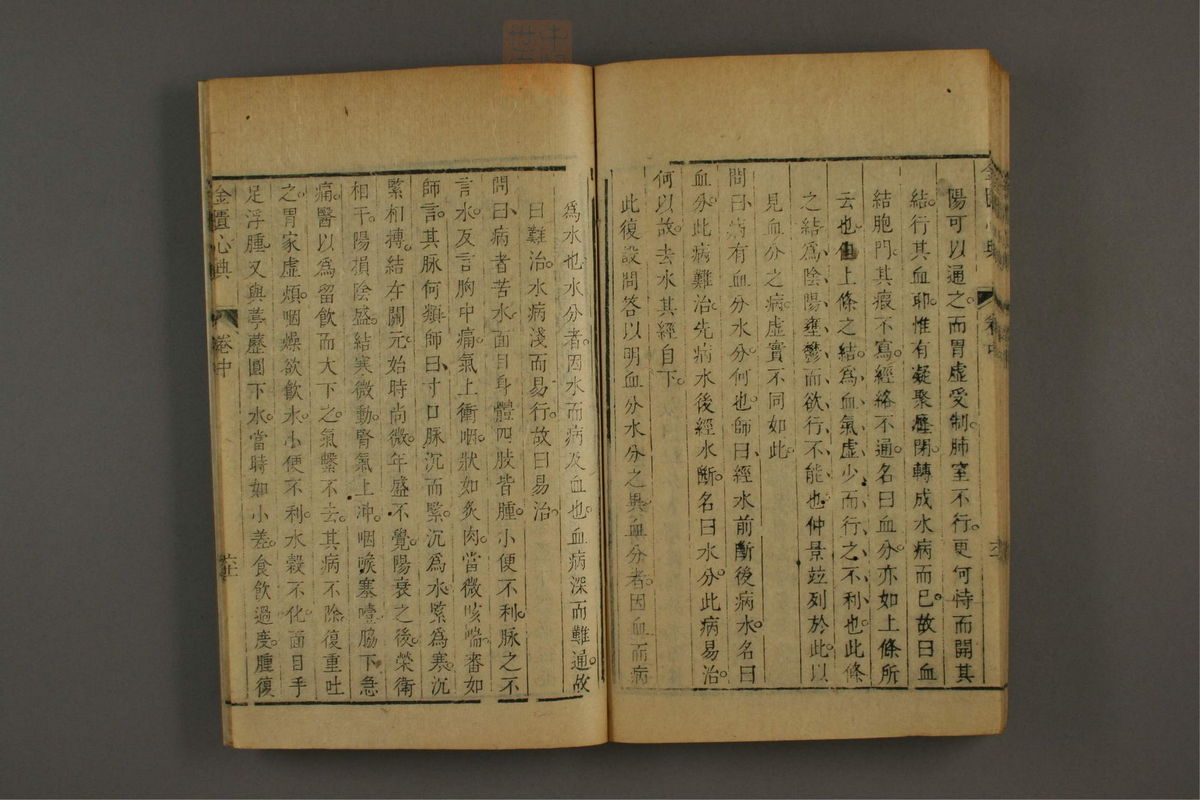 陽可以通之。而胃虛受制。肺室不行。更何恃而開其
結。行其血耶。惟有凝聚壅閉。轉成水病而已。故曰血
結胞門。其瘕不寫。經絡不通。名曰血分。亦如上條所
云也。但上條之結。為血氣虛少而行之不利也。此條
之結。為陰陽壅鬱而欲行不能也。仲景竝列於此。以
見血分之病。虛實不同如此。
問曰。病有血分水分。何也。師曰。經水前斷。後病水。名曰
血分。此病難治。先病水。後經水斷。名曰水分。此病易治。
何以故。去水。其經自下。
此復設問答。以明血分水分之異。血分者。因血而病
為水也。水分者。因水而病及血也。血病深而難通。故
曰難治。水病淺而易行。故曰易治。
問曰。病者苦水。面目身體四肢皆腫。小便不利。脉之。不
言水。反言胸中痛。氣上衝咽。狀如炙肉。當微咳喘。審如
師言。其脉何類。師曰。寸口脉沉而緊。沉為水。緊為寒。沉
緊相搏。結在關元。始時尚微。年盛不覺。陽衰之後。榮衛
相干。陽損陰盛。結寒微動。腎氣上冲。咽喉塞噎。脇下急
痛。醫以為留飲而大下之。氣繫不去。其病不除。復重吐
之。胃家虛煩。咽燥欲飲水。小便不利。水穀不化。面目手
足浮腫。又與葶藶圓下水。當時如小差。食飲過度。腫復
金匱心典
卷中